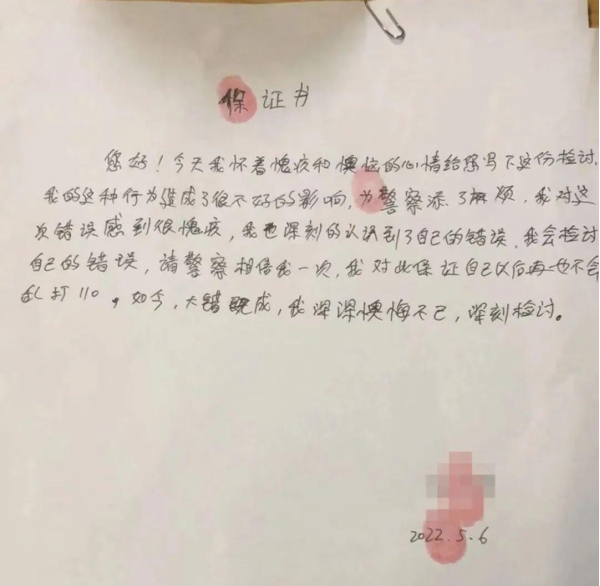 保证书
您好!今天我怀着愧疚和懊悔的心情给您写下这份检讨,
我的这种行为造成了很不好的影响,为警察添了麻烦,我对这
次错误感到很愧疚,我也深刻的认识到了自己的错误,我会检讨
自己的错误,请警察相信我一次,我对此保证自己以后再也不会
乱打110,如今,大错既成,我深深懊悔不已,深刻检讨。
2022.5.6